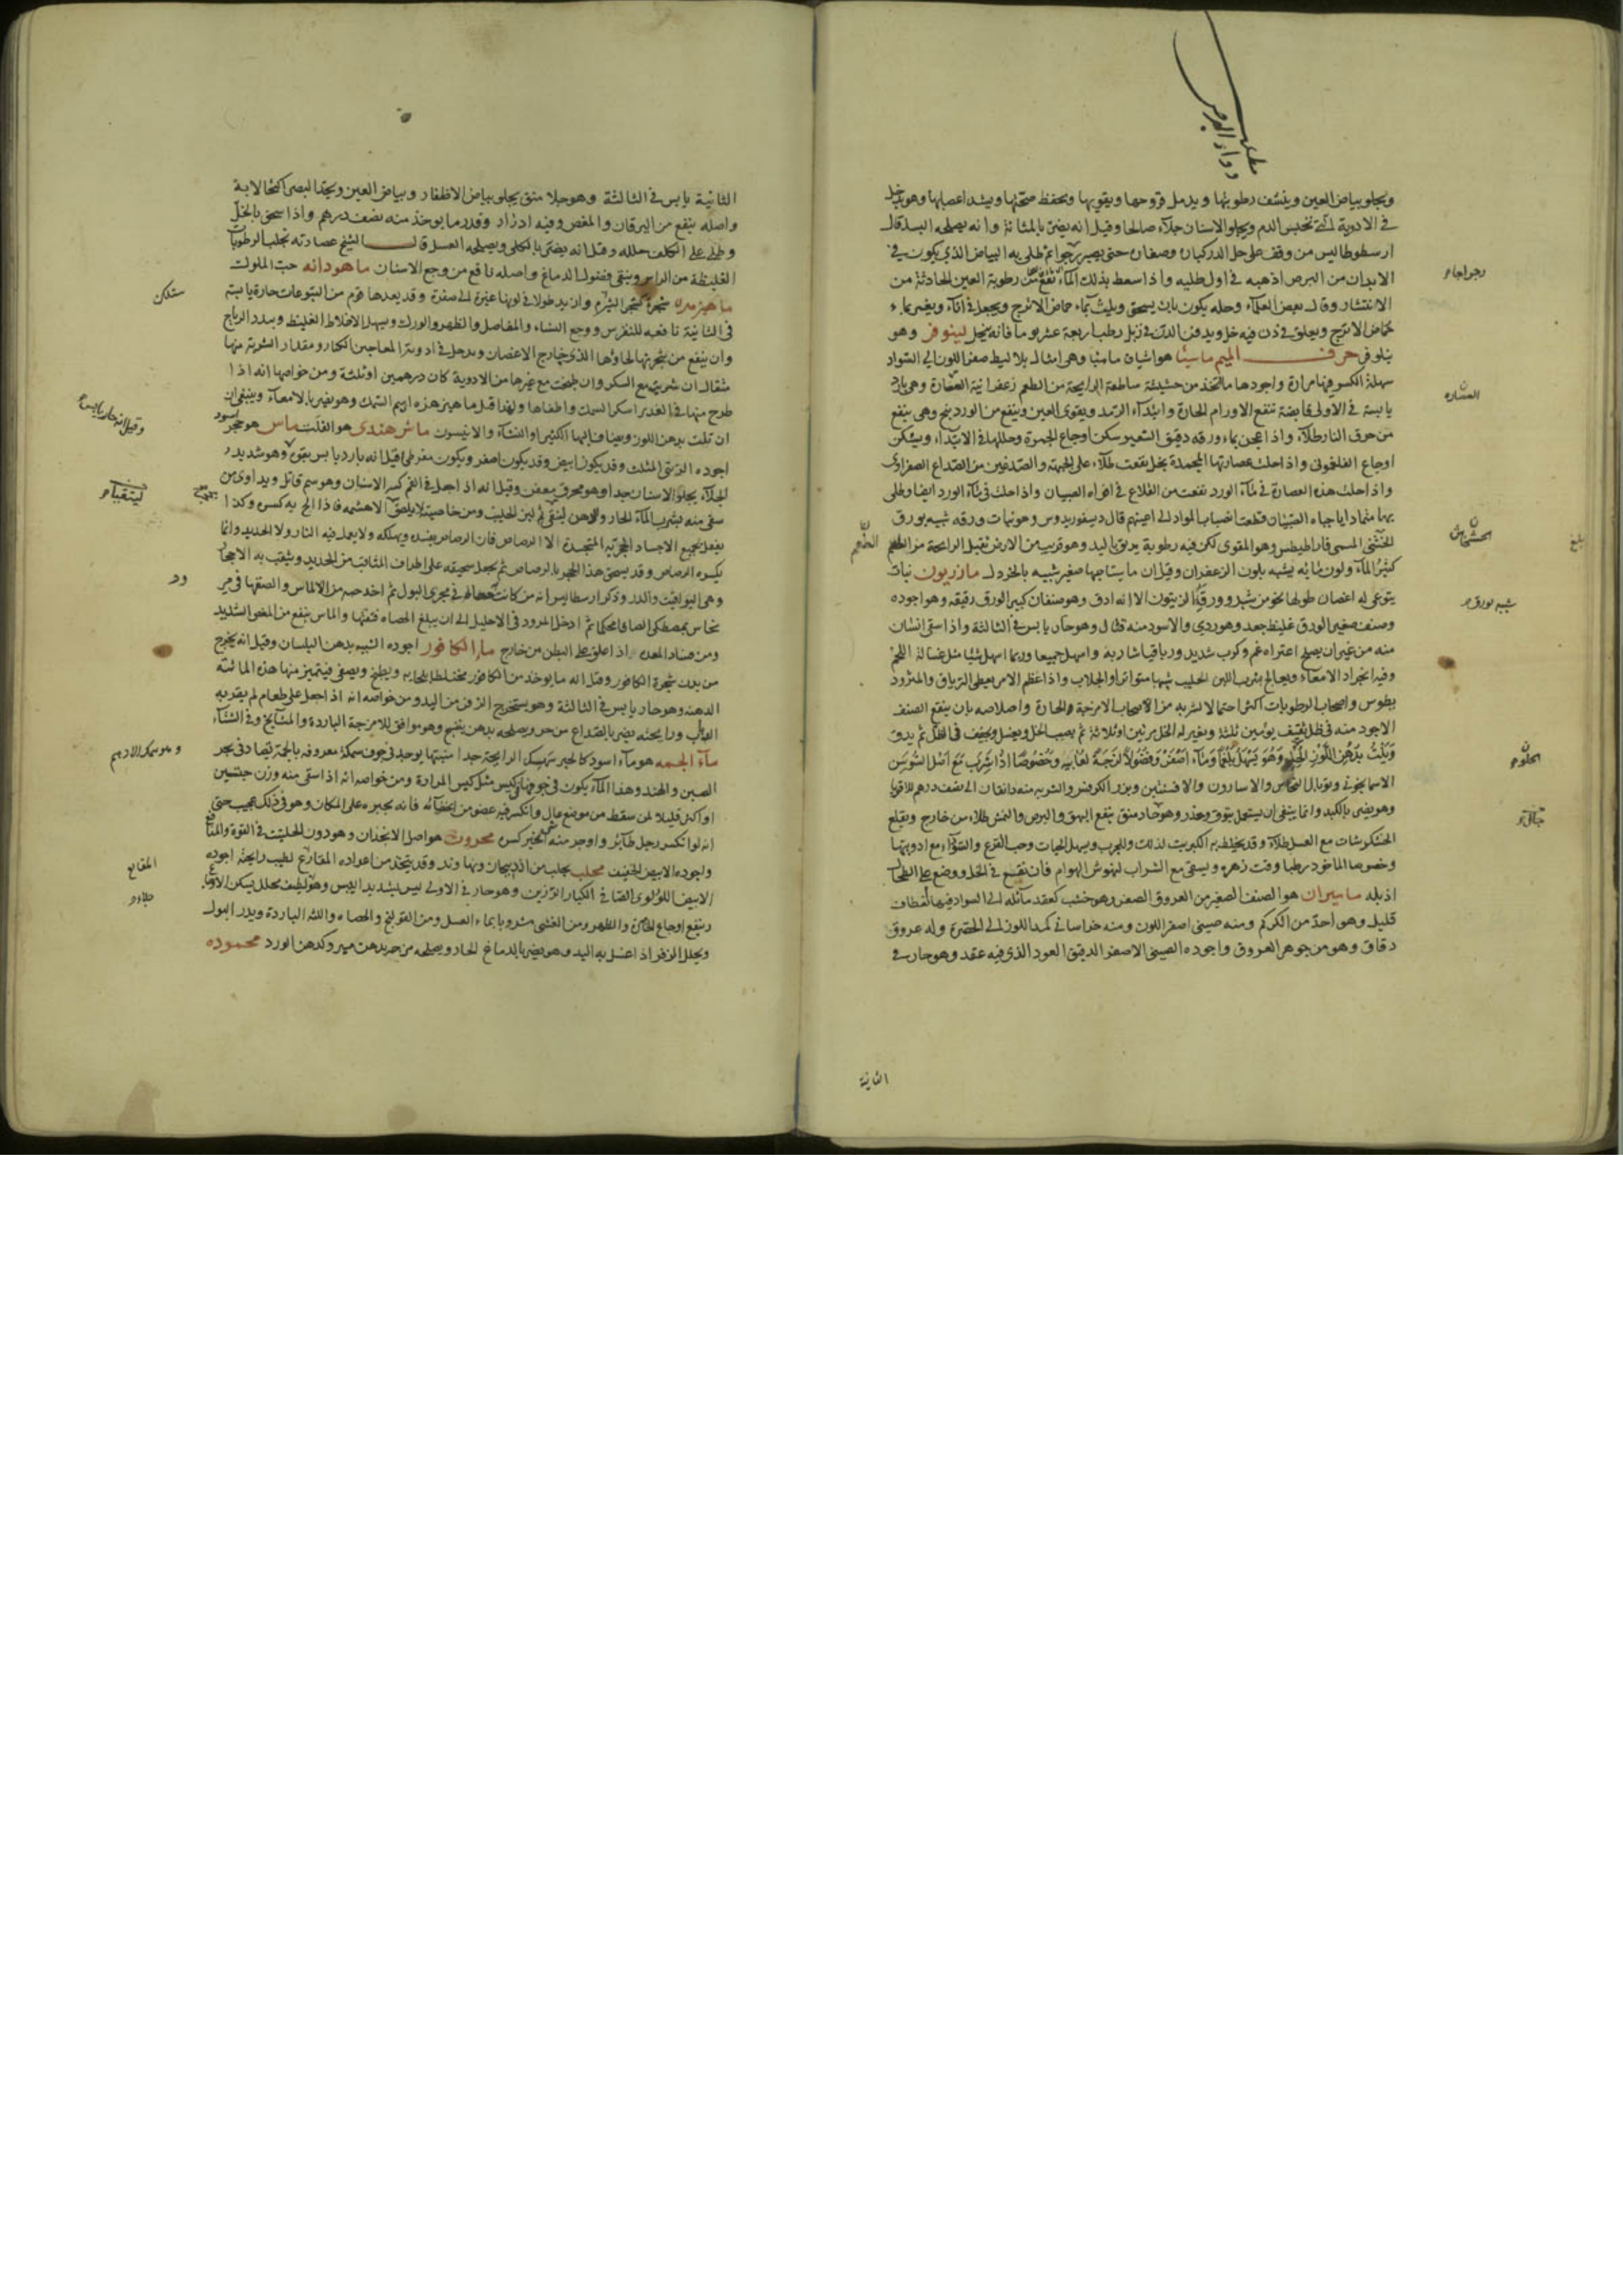 ويجلو بياض العين وينشف رطوبتها ويدمل قروحها ويقويها ويحفظ صحتها ويشد اعصابها وهو يدخل
في الادوية التي تحبس الدم ويجلو الاسنان جلاء صالحا وقيل انه يضر بالمثانة وانه يصلحه البسد قال
ارسطوطاليس من وقف على حل الدر كباره وصغاره حتى يصير رجراجا ثم طلى به البياض الذي يكون في
الابدان من البرص اذهبه في اول طليه واذا سعط بذلك الماء نفع من رطوبة العين الحادثة من
الانتشار وقال بعض العلماء وحله يكون بان يسحق ويلت بماء حماض الاترج ويجعل في اناء ويغمر بماء
حماض الاترج ويعلق في دن فيه خل ويدفن الدن في زبل رطب اربعة عشر يوما فانه ينحل لينوفر وهو
نيلوفر حرف الميم ماميثا هو اشياف ماميثا وهي امثال بلاليط صفر اللون الى السواد
سهلة الكسر فيها مرارة واجودها ما اتخذ من حشيشة ساطعة الرايحة مرة الطعم زعفرانية العصارة وهي باردة
يابسة في الاولى قابضة تنفع الاورام الحارة وابتداء الرمد ويقوى العين وينفع من الوردينج وهي ينفع
من حرق النار طلاء واذا عجن بماء ورقه دقيق الشعير سكن اوجاع الحمرة وحللها في الابتداء ويسكن
اوجاع الفلغموني واذا حلت عصارتها المجمدة بخل نفعت طلاء على الجبهة والصدغين من الصداع الصفراوي
واذا حلت هذه العصارة في ماء الورد نفعت من القلاع في افواه الصبيان واذا حلت في ماء الورد ايضا وطلى
بها ضمادا يا جباه الصبيان قطعت انصباب المواد الى اعينهم قال ديسقوريدوس وهو نبات ورقه شبيه بورق
الخشخاش المسمى قاراطيطس وهو المقوى لكن فيه رطوبة يدبق باليد وهو قريب من الارض ثقيل الرايحة مر الطعم
كثير الماء ولون مائه يشبه بلون الزعفران وقيل ان ماميثا حبها صغير شبيه بالخردل مازريون نبات
يتوعي له اغصان طولها نحو من شبر وورقه كالزيتون الا انه ادق وهو صنفان كبير الورق رقيقه وهو اجوده
وصنف صغير الورق غليظ جعد وهو ردي والاسود منه قتال وهو حار يابس في الثالثة واذا سقى انسان
منه من غير ان يصلح اعتراه غم وكرب شديد ورباقيا شاربه واسهل جميعا وربما اسهل شيئا مثل غسالة اللحم
وفيه انجراد الامعاء ويعالج بشرب اللبن الحليب شربا متواترا والجلاب واذا عظم الامر يعطى الترياق والمثرود
يطوس واصحاب الرطوبات اكثر احتمالا لشربه من الاصحاب الامزجة الحارة واصلاحه بان ينقع الصنف
الاجود منه في خل ثقيف يومين ثلثة ويغير له الخل مرتين او ثلاثة ثم يصب الخل ويغسل ويجفف في الظل ثم يدق
ويلت بدهن اللوز الحلو وهو يسهل بلغما وماء اصفر وفضولا لزجة لعابيه وخصوصا اذا شرب مع اصل السوسن
الاسمانجوني وتوبال النحاس والاسارون والافسنتين وبزر الكرفس والشربه منه دانقان الى نصف درهم للاقويا
وهو يضر بالكبد وانما ينبغي ان يستعمل بتوق وحذر وهو حار منق ينفع البهق والبرص والنمش طلاء من خارج ويقلع
الخشكريشات مع العسل طلاء وقد يخلط به الكبريت لذلك وللجرب ويسهل الحيات وحب القرع والسوداء مع ادويتها
وخصوصا الماخوذ رطبا وقت زهره ويسقى مع الشراب لنهوش الهوام فان نقع في الخل ووضع على الطحال
اذبله ماميران هو الصنف الصغير من العروق الصفر وهو خشب كعقد مائله الى السواد فيها انعطاف
قليل وهو احد من الكركم ومنه صيني اصفر اللون ومنه خراساني كمد اللون الى الخضرة وله عروق
دقاق وهو من جوهر العروق واجوده الصيني الاصفر الدقيق العود الذي فيه عقد وهو حار في
الثانية
رجراجا
العصاره
الخشخاش
بلغ
الطعم
شبيه بورق
الحلو
الثانية يابس في الثالثة وهو جلا منق يجلو بياض الاظفار وبياض العين ويحد البصر اكتحالا به
واصله ينفع من اليرقان والمغص وفيه ادرار وقدر ما يوخذ منه نصف درهم واذا سحق بالخل
وطلى على الكلف حلله وقيل انه يضر بالكلى ويصلحه العسل قال الشيخ عصارته تجلب الرطوبات
الغليظة من الراس وينقى فضول الدماغ واصله نافع من وجع الاسنان ماهودانه حب الملوك
ماهيزهره شجرة كشجر الشبرم وازيد طولا في لونها غبرة الى صفرة وقد يعدها قوم من اليتوعات حارة يابسة
في الثانية نافعه للنقرس ووجع النساء والمفاصل والظهر والورك ويسهل الاخلاط الغليظ ويبدد الرياح
وان ينفع من شجرتها لحاؤها الذي خارج الاغصان ويدخل في ادوية المعاجين الكبار ومقدار الشربة منها
مثقال ان شربت مع السكر وان طبخت مع غيرها من الادوية كان درهمين او ثلثة ومن خواصها انه اذا
طرح منها في الغدير اسكر السمك واطفاها ولهذا قيل ماهيزهره اي سم السمك وهو يضر بالامعاء وينبغي ان
ان تلت بدهن اللوز ويضاف اليها الكثيرا والنشاء والانيسون ماش هندي هو القلت ماس هو حجر اسود
اجوده الزيتي المثلث وقد يكون ابيض وقد يكون اصفر ويكون مفرطح قيل انه بارد يابس بقوة وهو شديد
الجلاء يجلو الاسنان جيدا وهو محرق معفن وقيل انه اذا جعل في الفم كسر الاسنان وهو سم قاتل ويداوى من
سقى منه بشرب الماء الحار والدهن ليتقيا ثم لبن الحليب ومن خاصيته لا يلصق الا هشمه فاذا الح به كسره وكذا
يفعل بجميع الاجساد الحجرية المتجسدة الا الرصاص فان الرصاص يفسده ويهلكه ولا يعمل فيه النار ولا الحديد وانما
يكسره الرصاص وقد يسحق هذا الحجر بالرصاص ثم يجعل سحيقه على اطراف المثاقب من الحديد ويثقب به الاحجار
وهي اليواقيت والدر وذكر ارسطاليس انه من كانت به حصاة في مجرى البول ثم اخذ حبه من الالماس والصقها في مرود
نحاس بمصطكى الصاقا محكما ثم ادخل المرود في الاحليل الى ان يبلغ الحصاه فتتها والماس ينفع من المغص الشديد
ومن فساد المعده اذا علق على البطن من خارج ماء الكافور اجوده الشبيه بدهن البلسان وقيل انه يخرج
من بدن شجرة الكافور وقيل انه ما يوخذ من الكافور مختلطا بلحائه ويطبخ ويصفى فيتميز منها هذه المائية
الدهنه وهو حار يابس في الثالثة وهو يستخرج الزفر من اليد ومن خواصه انه اذا جعل على طعام لم يقربه
الذباب ورايحته يضر بالصداع من حر ويصلحه بدهن بنفسج وهو موافق للامزجة الباردة والمشايخ وفي الشتاء
ماء الجمه هو ماء اسود كالحبر سهك الرايحة جدا منتنها يوجد في جوف سمكة معروفه بالجمة تصاد في بحر
الصين والهند وهذا الماء يكون في جوفها في كيس مثل كيس المرارة ومن خواصه انه اذا سقى منه وزن حبتين
او اكثر قليلا لمن سقط من موضع عال وانكسر فيه عضو من اعضائه فانه يجبره على المكان وهو في ذلك عجيب حتى
انه لو انكسر رجل طائر واوجر منه انجبر كسره محروث هو اصل الانجدان وهو دون الحلتيت في القوة والمنافع
واجوده الابيض الخفيف محلب يجلب من اذربيجان ونهاوند وقد يتخذ من اعواده المقارع لطيب رايحته اجوده
الابيض اللؤلؤي الصافي الكبار الرزين وهو حار في الاولى ليس بشديد اليبس وهو لطيف محلل يسكن الاوجاع
وينفع اوجاع الخاصرة والظهر ومن الغشى مشروبا بماء العسل ومن القولنج والحصاه واللثه الباردة ويدر البول
ويحلل الزفر اذا غسل به اليد وهو يضر بالدماغ الحار ويصلحه من حر دهن ورد محموده
وقيل انه حار يابس
ليتقيا
ود
المقارع
جلا